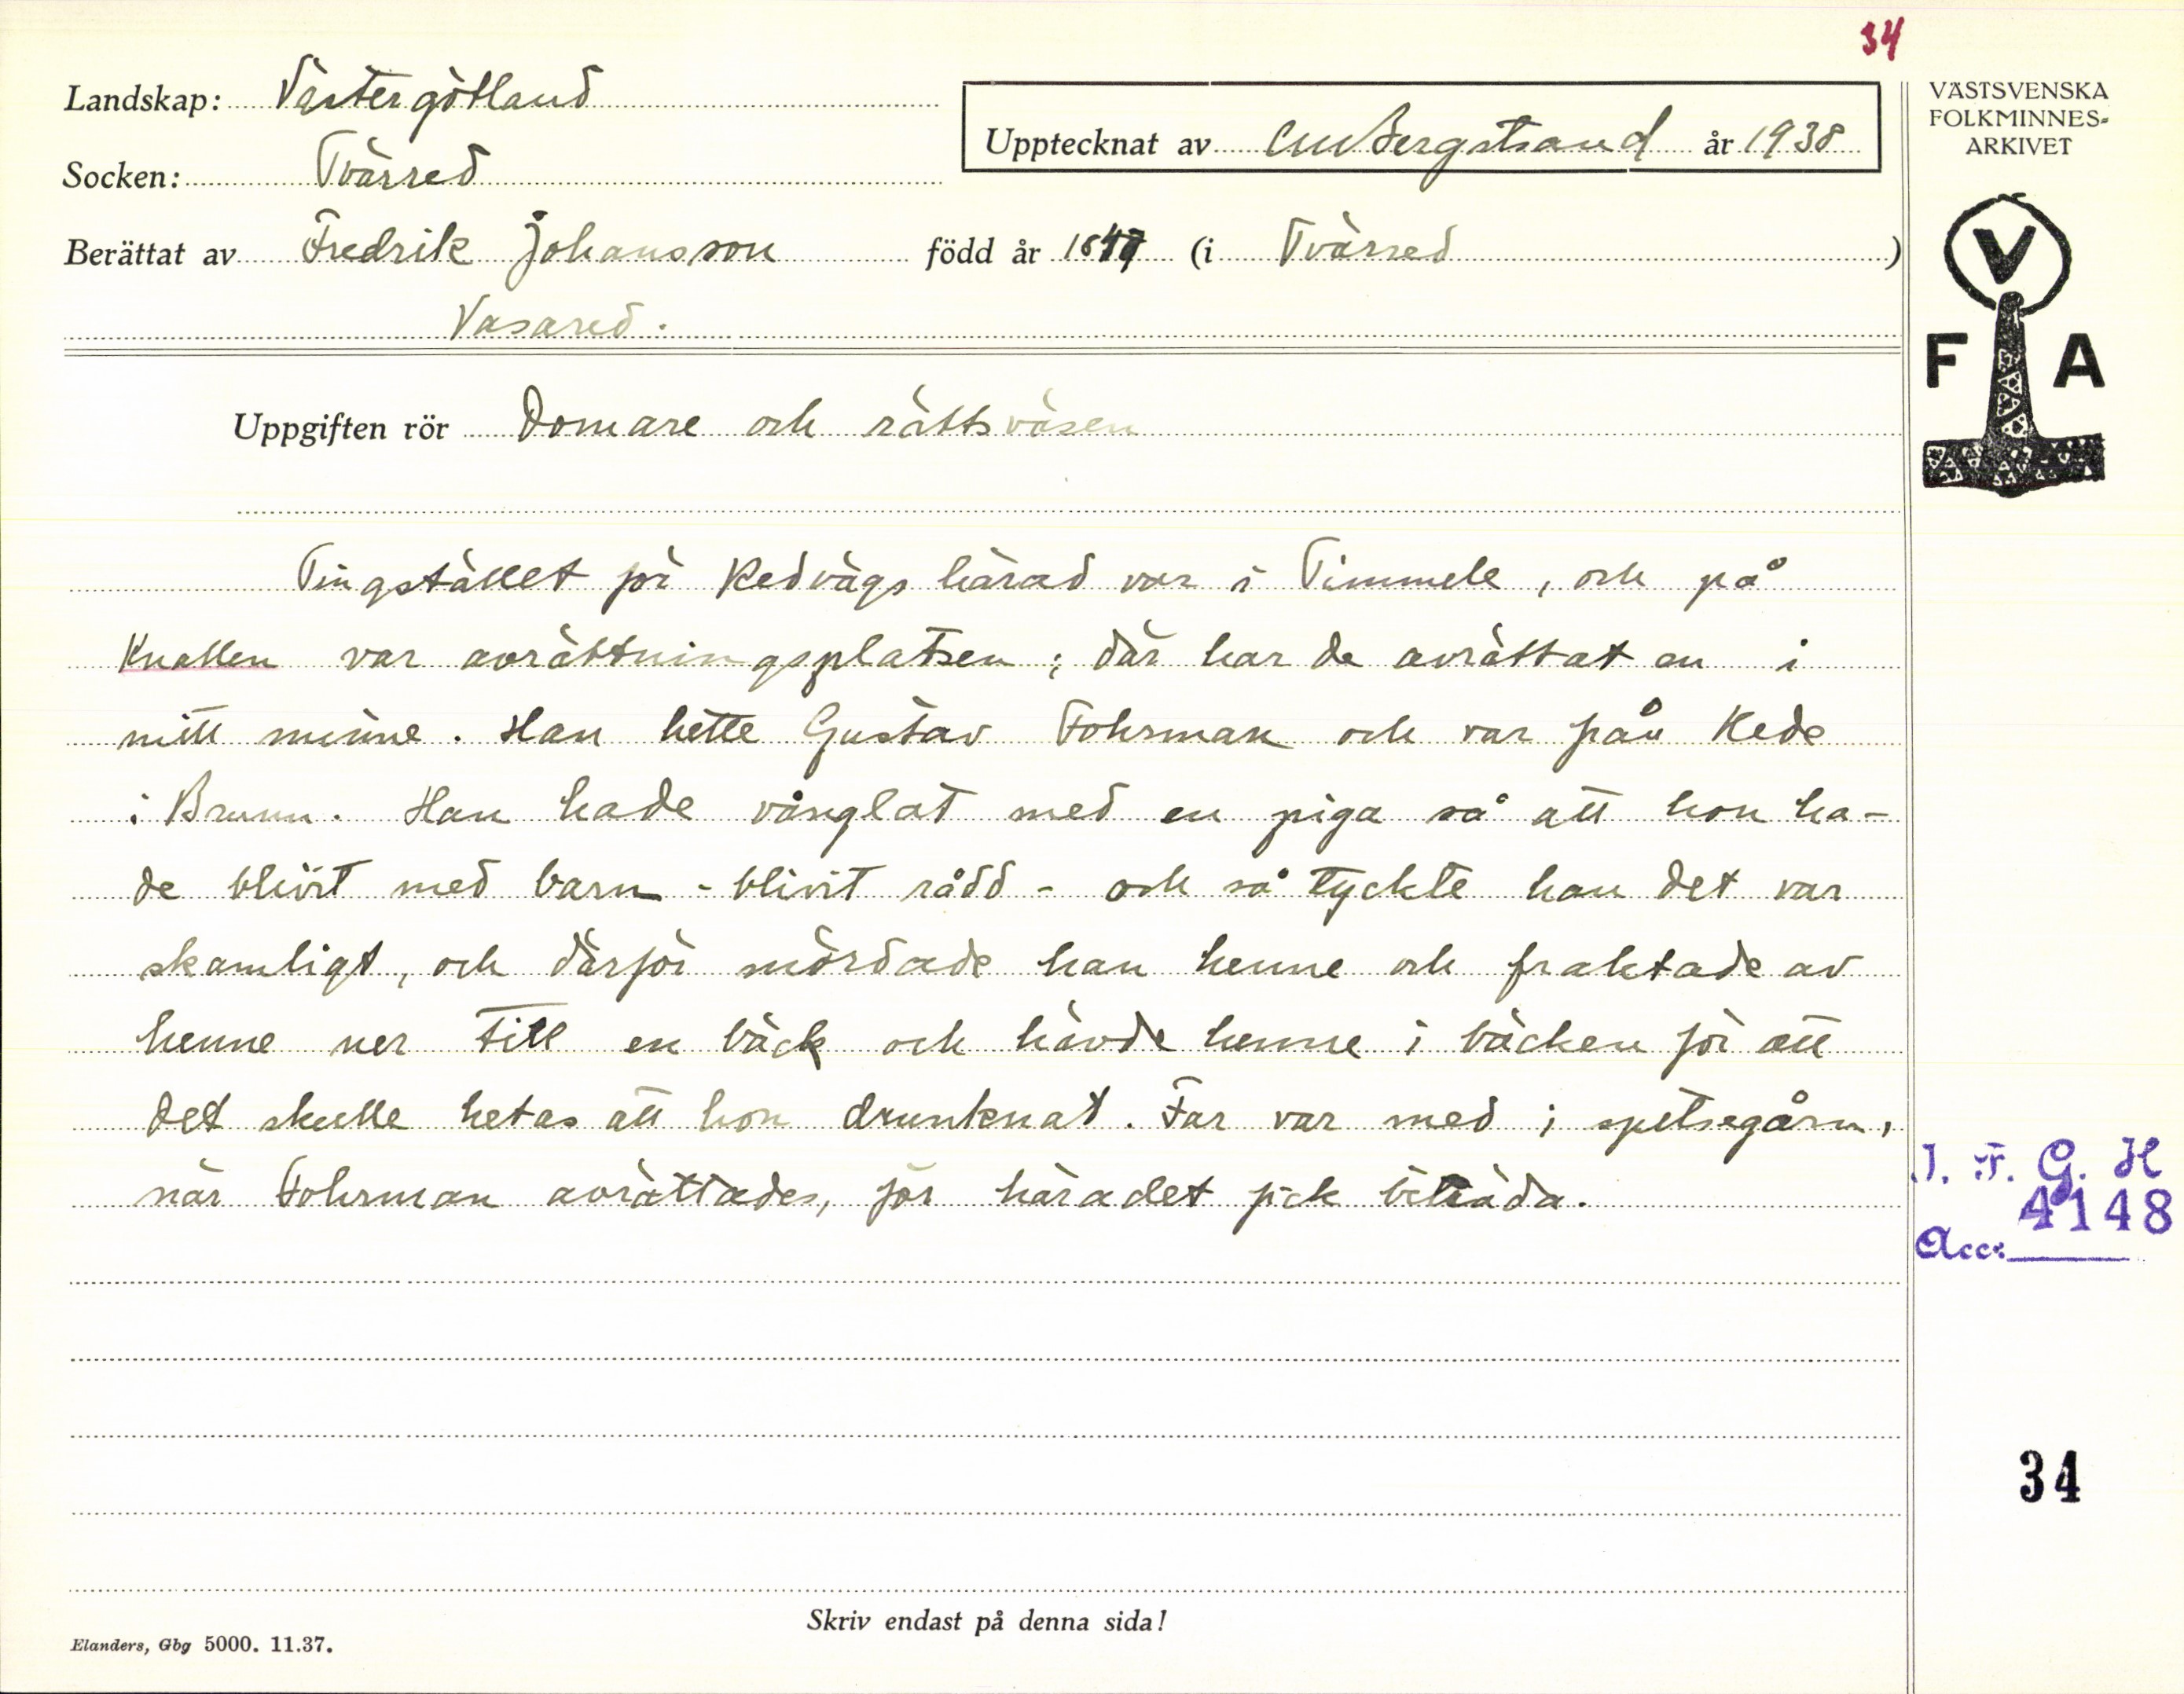 34
Landskap: Västergötland
Upptecknat av CMBergstrand år 1938
VÄSTSVENSKA
FOLKMINNES-
ARKIVET
Socken: Tvärred
Berättat av Fredrik Johansson född år 1847 (i Tvärred)
Vasared.
V
F A
Uppgiften rör Domare och rättsväsen
Tingstället för Redvägs härad var i Timmele, och på
Knallen var avrättningsplatsen; där har de avrättat en i
mitt minne. Han hette Gustav Fohrman och var från Kede
i Brunn. Han hade vånglat med en piga så att hon ha-
de blivit med barn - blivit rådd - och så tyckte han det var
skamligt, och därför mördade han henne och fraktade av
henne ner till en bäck och hävde henne i bäcken för att
det skulle hetas att hon drunknat. Far var med i spetsegårn,
när Fohrman avrättades, för häradet fick biträda.
I. F. G. H
4148
Acc:
34
Skriv endast på denna sida!
Elanders, Gbg 5000. 11.37.